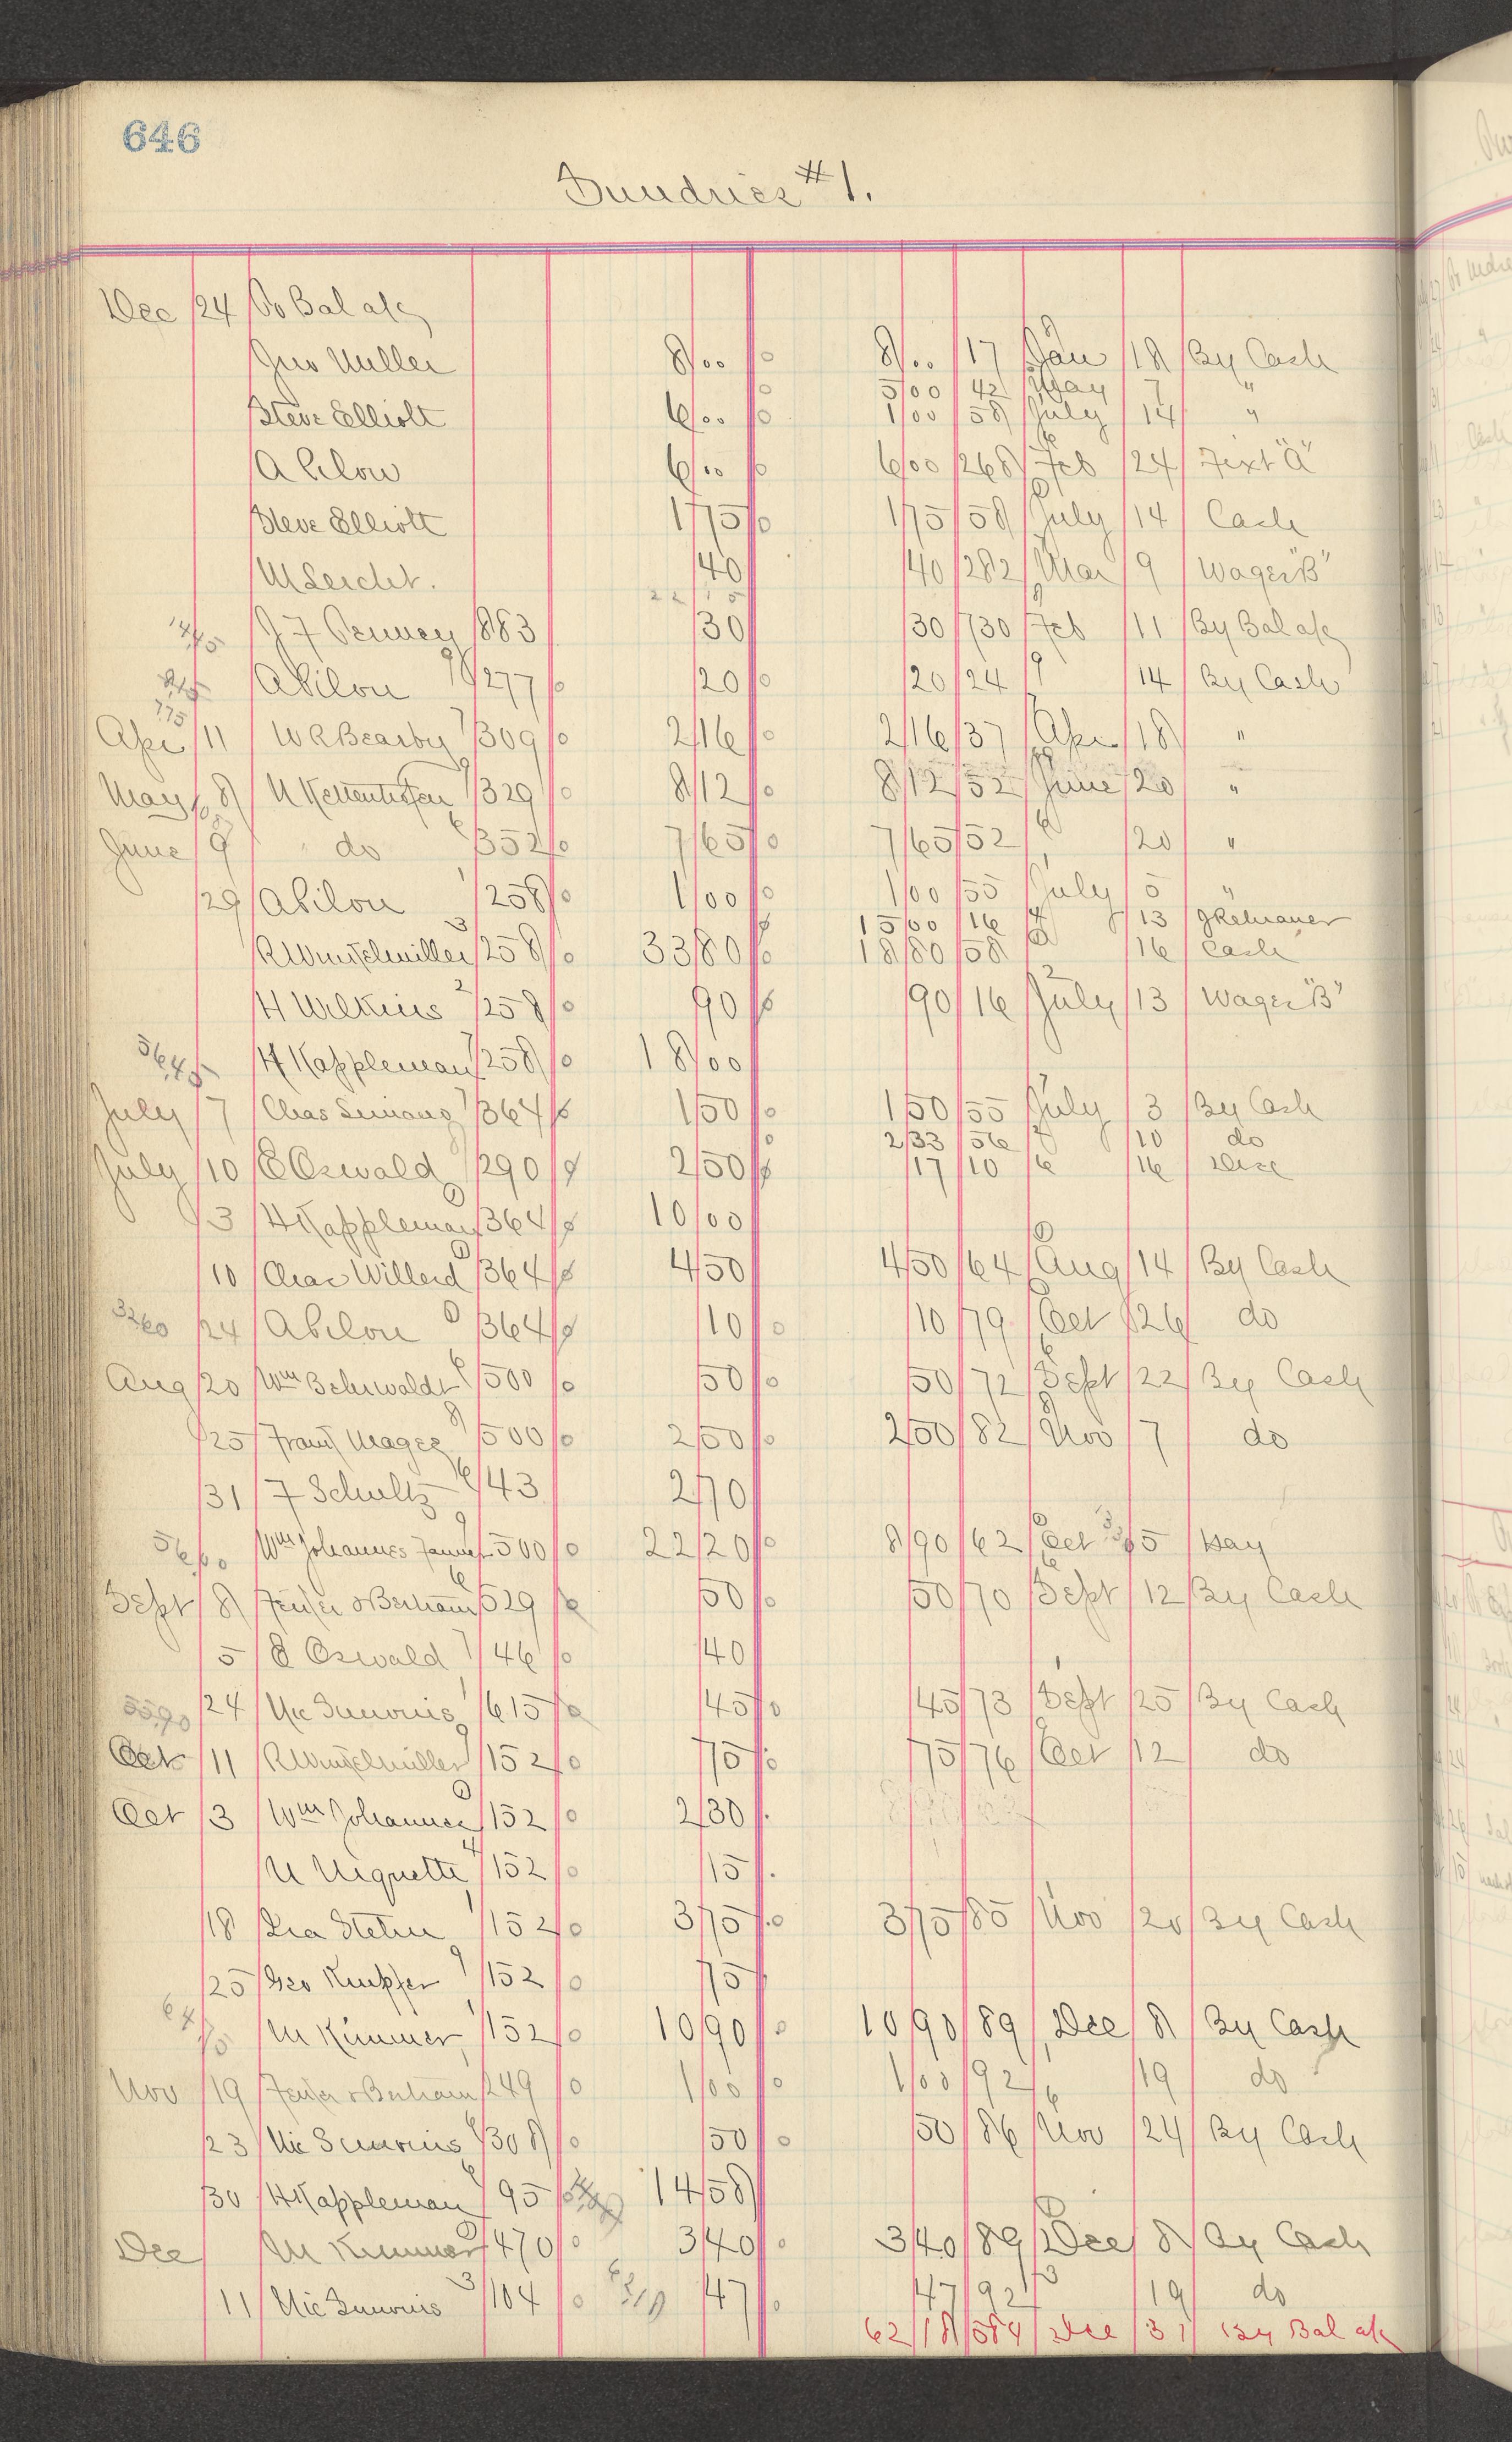 646
Sundries #1.
Dec 24 To Bal a/c
Jno Miller 8 00 8 00 17 Jan 18 By Cash
5 00 42 May 7 "
Steve Elliott 6 00 1 00 58 July 14 "
A Pilon 6 00 6 00 268 Feb 24 Fixt "A"
Steve Elliott 1 75 1 75 58 July 14 Cash
M Leicht. 40 40 282 Mar 9 Wages "B"
22 15
J F Penney 863 30 30 730 Feb 11 By Bal a/c
A Pilon 277 20 20 24 14 By Cash
Apr 11 W R Bearby 309 2 16 2 16 37 Apr 18 "
May 8 M Kettenhofen 329 8 12 8 12 52 June 20 "
June 9 do 352 7 65 7 65 52 20 "
29 A Pilon 258 1 00 1 00 55 July 5 "
15 00 16 13
R Wunschmiller 258 33 80 18 80 58 16 Cash
H Wilkins 258 90 90 16 July 13 Wages "B"
H Kappleman 258 18 00
July 7 Chas Simano 364 1 50 1 50 55 July 3 By Cash
2 33 56 10 do
July 10 E Oswald 290 2 50 17 10 16 Disc
3 H Kappleman 364 10 00
10 Chas Willerd 364 4 50 4 50 64 Aug 14 By Cash
24 A Pilon 364 10 10 79 Oct 26 do
Aug 20 Wm Behrwaldt 500 50 50 72 Sept 22 By Cash
25 Frank Magee 500 2 50 2 50 82 Nov 7 do
31 F Schultz 43 2 70
Wm Johannes 500 22 20 8 90 62 Oct 5 Hay
Sept 8 529 50 50 70 Sept 12 By Cash
5 E Oswald 46 40
24 Nic Simonis 615 45 45 73 Sept 25 By Cash
Oct 11 R Wunschmiller 152 75 75 76 Oct 12 do
Oct 3 Wm Johannes 152 2 30
M Miquette 152 15
18 Ira Stetin 152 3 75 3 75 85 Nov 20 By Cash
25 Geo Kupfer 152 75
M Kummer 152 10 90 10 90 89 Dec 8 By Cash
Nov 19 249 1 00 1 00 92 19 do
23 Nic Simonis 308 50 50 86 Nov 24 By Cash
30 H Kappleman 95 14 58
Dec M Kummer 470 3 40 3 40 89 Dec 8 By Cash
11 Nic Simonis 104 47 47 92 19 do
62 18 584 Dec 31 By Bal a/c